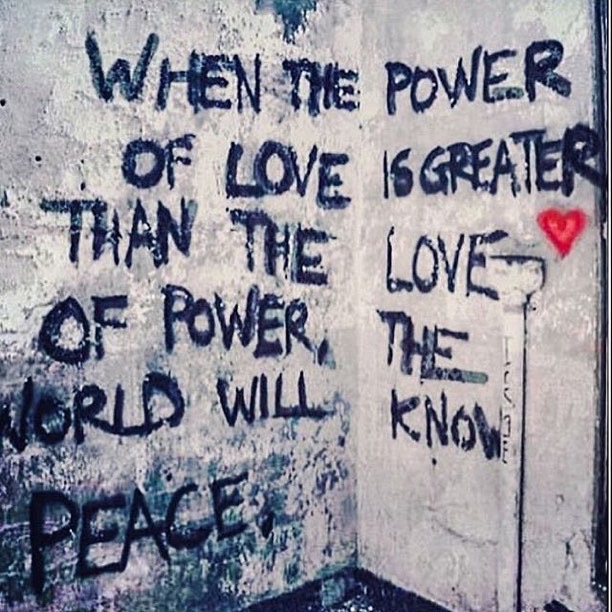 WHEN THE POWER
OF LOVE IS GREATER
THAN THE LOVE
OF POWER, THE
WORLD WILL KNOW
PEACE.